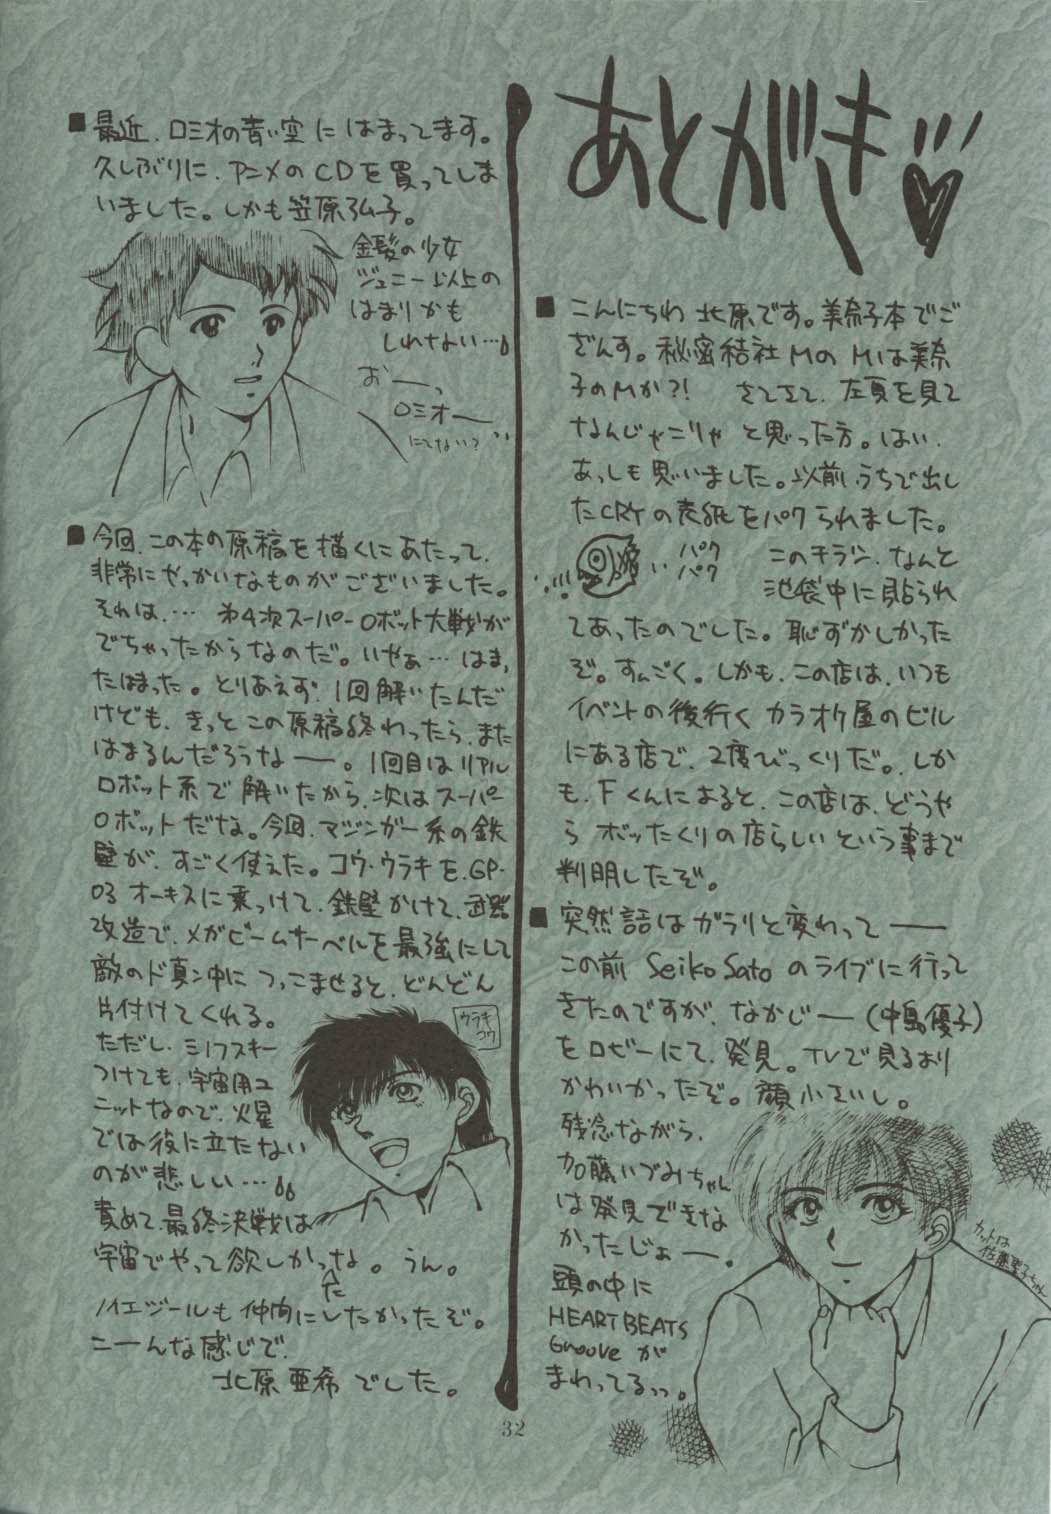 あとがき
■こんにちわ北原です。美奈子本でご
ざんす。秘密結社MのMは美奈
子のMか?! さてさて、左頁を見て
なんじゃこりゃと思った方。はい、
あっしも思いました。以前うちで出し
たCRYの表紙をパクられました。
パク
パク
このチラシ、なんと
池袋中に貼られ
てあったのでした。恥ずかしかった
ぞ。すんごく。しかも、この店は、いつも
イベントの後行くカラオケ屋のビル
にある店で、2度びっくりだ。しか
も、Fくんによると、この店は、どうや
らボッたくりの店らしいという事まで
判明したぞ。
■突然話はガラリと変わって――
この前 Seiko Sato のライブに行って
きたのですが、なかじー(中島優子)
をロビーにて、発見。TVで見るより
かわいかったぞ。顔小さいし。
残念ながら、
加藤いづみちゃん
は発見できな
かったじょー。
頭の中に
HEART BEATS
Grooveが
まわってるっっ。
カットは
佐藤聖子ちゃん
■最近、ロミオの青い空にはまってます。
久しぶりに、アニメのCDを買ってしま
いました。しかも笠原弘子。
金髪の少女
ジェニー以上の
はまりかも
しれない…
おーっ
ロミオー
にてない?
■今回、この本の原稿を描くにあたって、
非常にやっかいなものがございました。
それは、… 第4次スーパーロボット大戦が
でちゃったからなのだ。いやぁ…はま、
たはまった。とりあえず、1回解いたんだ
けども、きっとこの原稿終わったら、また
はまるんだろうなー。1回目はリアル
ロボット系で解いたから、次はスーパー
ロボットだな。今回、マジンガー系の鉄
壁が、すごく使えた。コウ・ウラキを、GP-
03オーキスに乗っけて、鉄壁かけて、武器
改造で、メガビームサーベルを最強にして
敵のド真ン中につっこませると、どんどん
片付けてくれる。
ただし、ミノフスキー
つけても、宇宙用ユ
ニットなので、火星
では役に立たない
のが悲しい…
責めて、最終決戦は
宇宙でやって欲しかったな。うん。
ノイエジールも仲間にしたかったぞ。
こーんな感じで、
北原亜希でした。
ウラキ
コウ
32